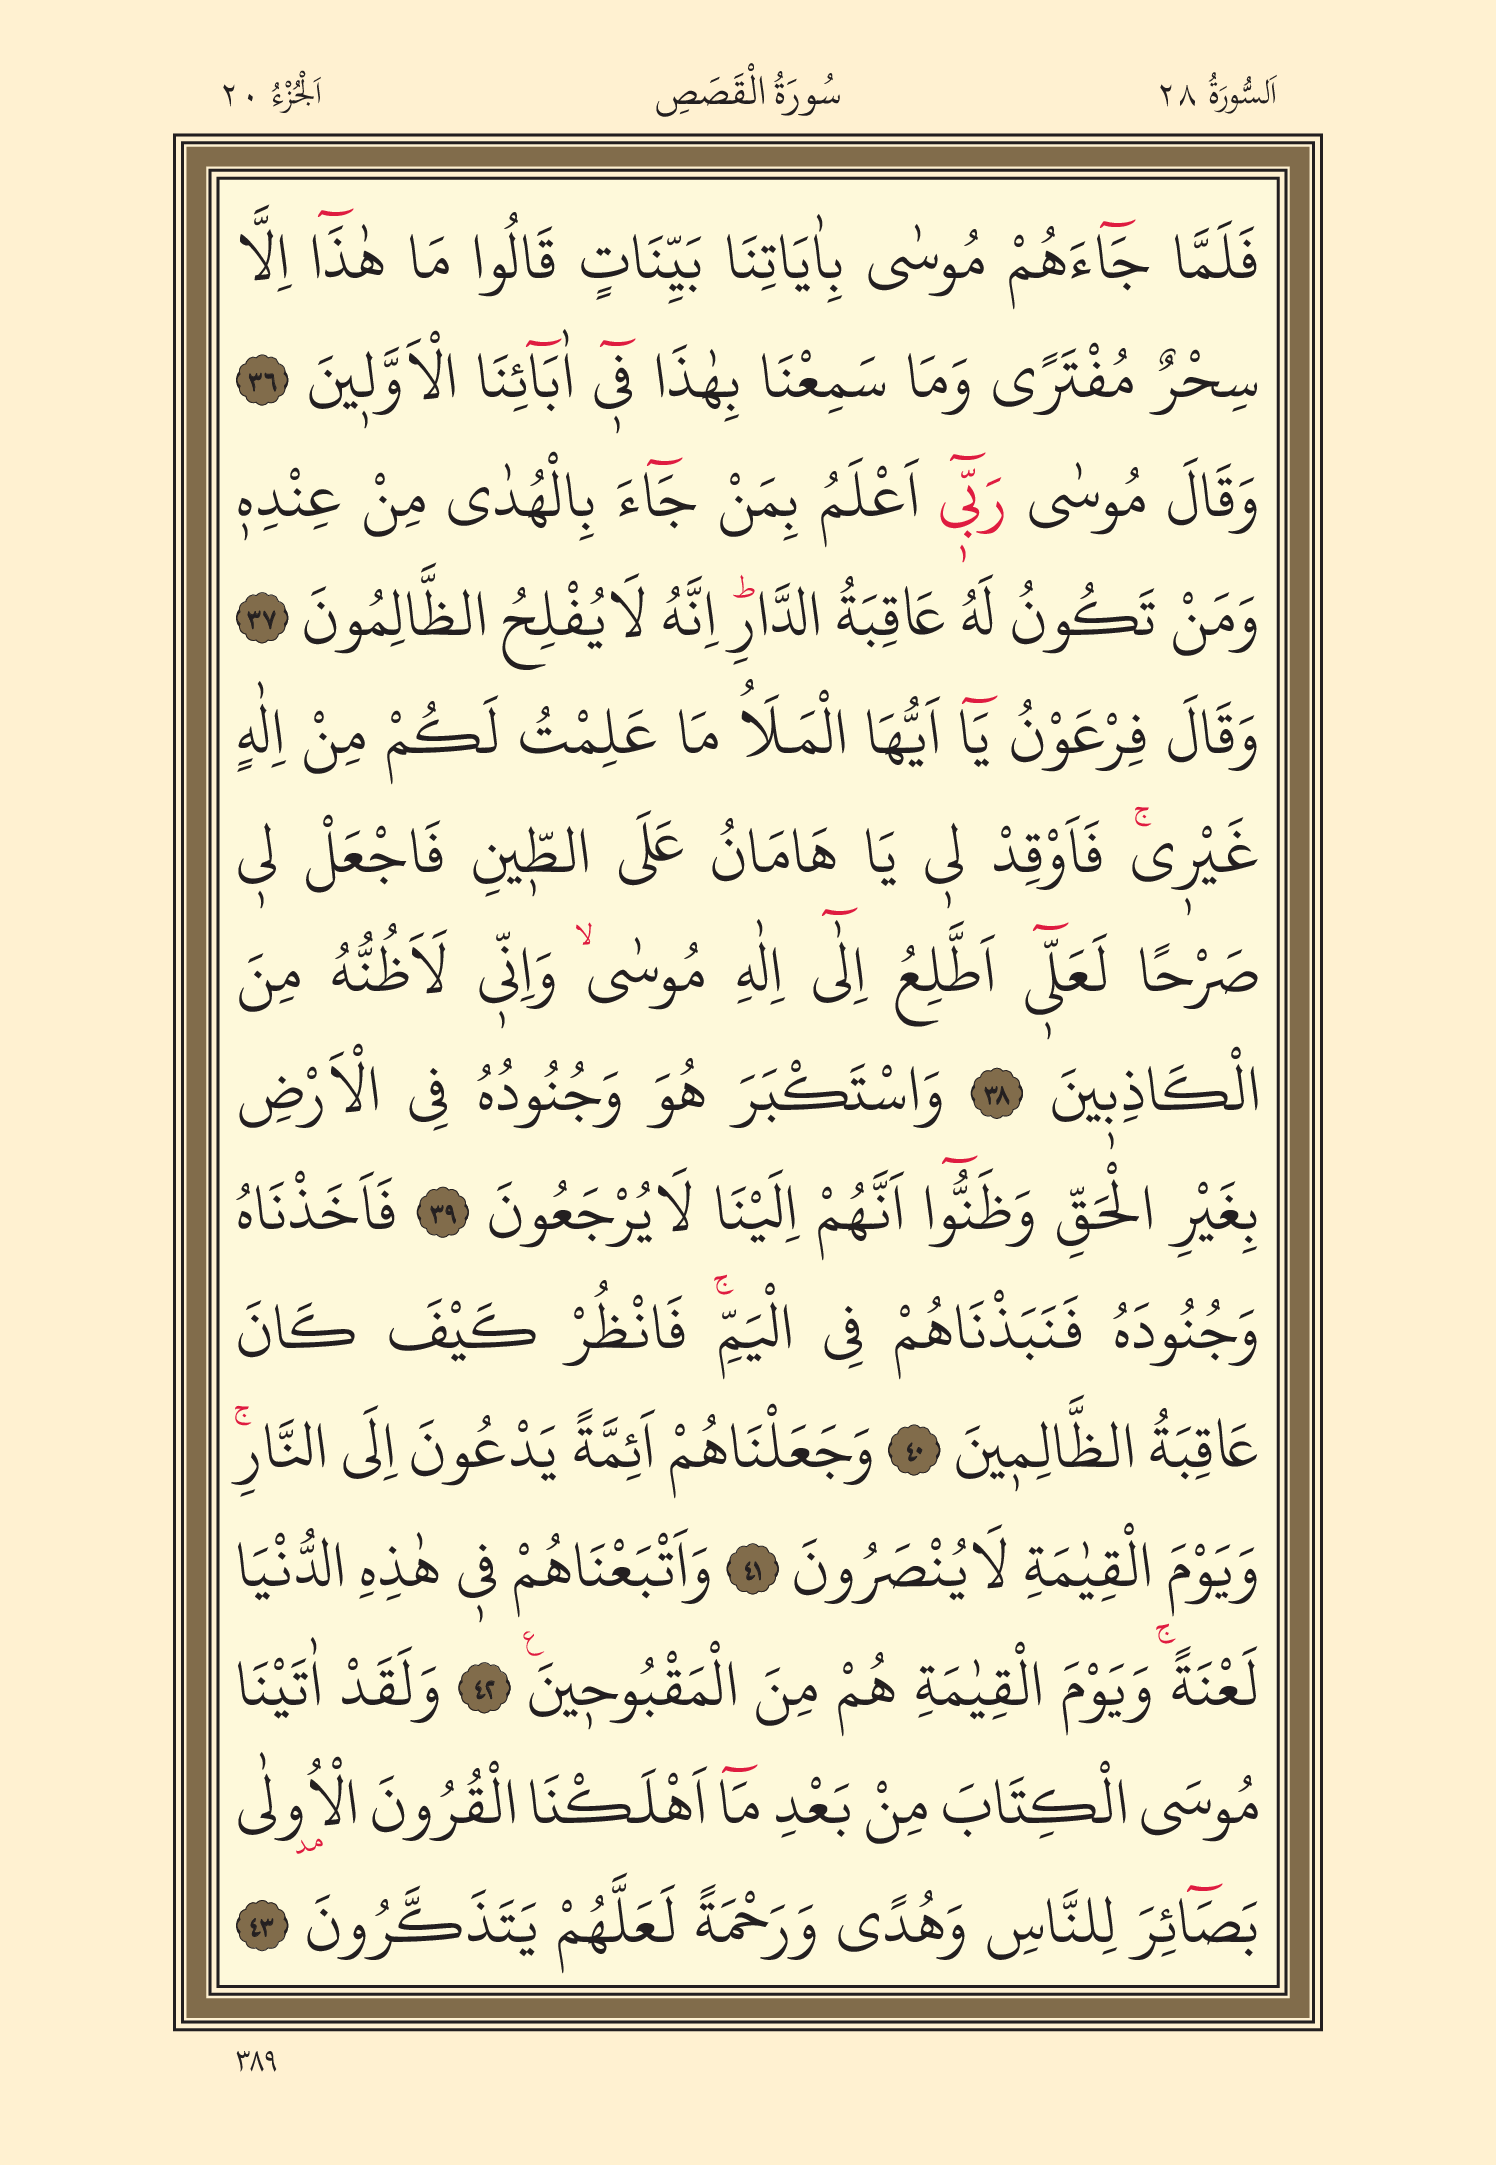 اَلسُّورَةُ ٢٨ سُورَةُ الْقَصَصِ اَلْجُزْءُ ٢٠
فَلَمَّا جَٓاءَهُمْ مُوسٰى بِاٰيَاتِنَا بَيِّنَاتٍ قَالُوا مَا هٰذَٓا اِلَّا
سِحْرٌ مُفْتَرًى وَمَا سَمِعْنَا بِهٰذَا ف۪ٓى اٰبَٓائِنَا الْاَوَّل۪ينَ ٣٦
وَقَالَ مُوسٰى رَبّ۪ٓى اَعْلَمُ بِمَنْ جَٓاءَ بِالْهُدٰى مِنْ عِنْدِه۪
وَمَنْ تَكُونُ لَهُ عَاقِبَةُ الدَّارِۜ اِنَّهُ لَا يُفْلِحُ الظَّالِمُونَ ٣٧
وَقَالَ فِرْعَوْنُ يَٓا اَيُّهَا الْمَلَاُ مَا عَلِمْتُ لَكُمْ مِنْ اِلٰهٍ
غَيْر۪ىۚ فَاَوْقِدْ ل۪ى يَا هَامَانُ عَلَى الطّ۪ينِ فَاجْعَلْ ل۪ى
صَرْحًا لَعَلّ۪ٓى اَطَّلِعُ اِلٰٓى اِلٰهِ مُوسٰىۙ وَاِنّ۪ى لَاَظُنُّهُ مِنَ
الْكَاذِب۪ينَ ٣٨ وَاسْتَكْبَرَ هُوَ وَجُنُودُهُ فِى الْاَرْضِ
بِغَيْرِ الْحَقِّ وَظَنُّٓوا اَنَّهُمْ اِلَيْنَا لَا يُرْجَعُونَ ٣٩ فَاَخَذْنَاهُ
وَجُنُودَهُ فَنَبَذْنَاهُمْ فِى الْيَمِّۚ فَانْظُرْ كَيْفَ كَانَ
عَاقِبَةُ الظَّالِم۪ينَ ٤٠ وَجَعَلْنَاهُمْ اَئِمَّةً يَدْعُونَ اِلَى النَّارِۚ
وَيَوْمَ الْقِيٰمَةِ لَا يُنْصَرُونَ ٤١ وَاَتْبَعْنَاهُمْ ف۪ى هٰذِهِ الدُّنْيَا
لَعْنَةًۚ وَيَوْمَ الْقِيٰمَةِ هُمْ مِنَ الْمَقْبُوح۪ينَ ع ٤٢ وَلَقَدْ اٰتَيْنَا
مُوسَى الْكِتَابَ مِنْ بَعْدِ مَٓا اَهْلَكْنَا الْقُرُونَ الْاُولٰى
مد
بَصَٓائِرَ لِلنَّاسِ وَهُدًى وَرَحْمَةً لَعَلَّهُمْ يَتَذَكَّرُونَ ٤٣
٣٨٩